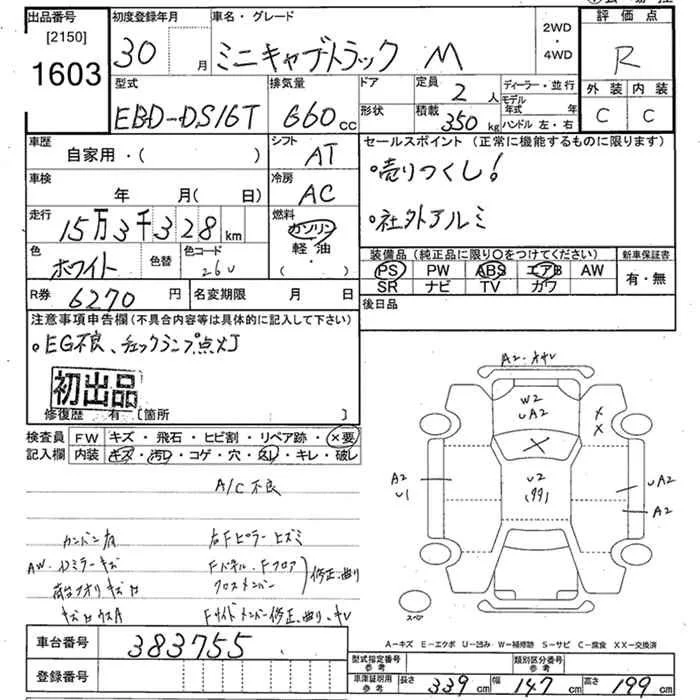 出品番号
[2150]
1603
初度登録年月
30 月
車名・グレード
ミニキャブトラック M
2WD
・
4WD
評価点
R
外装 内装
C C
型式
EBD-DS16T
排気量
660 cc
ドア
形状
定員
2 人
積載
350 kg
ディーラー・並行
モデル年式 年
ハンドル 左・右
車歴
自家用・( )
シフト
AT
車検
年 月(日)
冷房
AC
走行
15万3千328 km
燃料
ガソリン
軽・油
・( )
色
ホワイト
色替
色コード
26U
R券 6270 円
名変期限 月 日
セールスポイント(正常に機能するものに限ります)
・売りつくし!
・社外アルミ
装備品(純正品に限り○をつけてください)
PS PW ABS エアB AW
SR ナビ TV カワ
新車保証書
有・無
後日品
注意事項申告欄(不具合内容等は具体的に記入して下さい)
・EG不良、チェックランプ点灯
初出品
修復歴 有 [箇所 ]
検査員記入欄
FW キズ・飛石・ヒビ割・リペア跡・×要
内装 キズ・汚レ・コゲ・穴・スレ・キレ・破レ
A/C不良
右Fピラーヒズミ
クロスメンバー
修正、曲り
Fサイドメンバー修正、曲り、キレ
車台番号 383755
登録番号
W2
UA2
×
×
×
A2
U1
U2
(99)
UA2
A2
スペア
A-キズ E-エクボ U-凹み W-補修跡 S-サビ C-腐食 XX-交換済
型式指定番号
参考
類別区分番号
参考
車庫証明用
参考
長さ 339 cm
幅 147 cm
高さ 199 cm